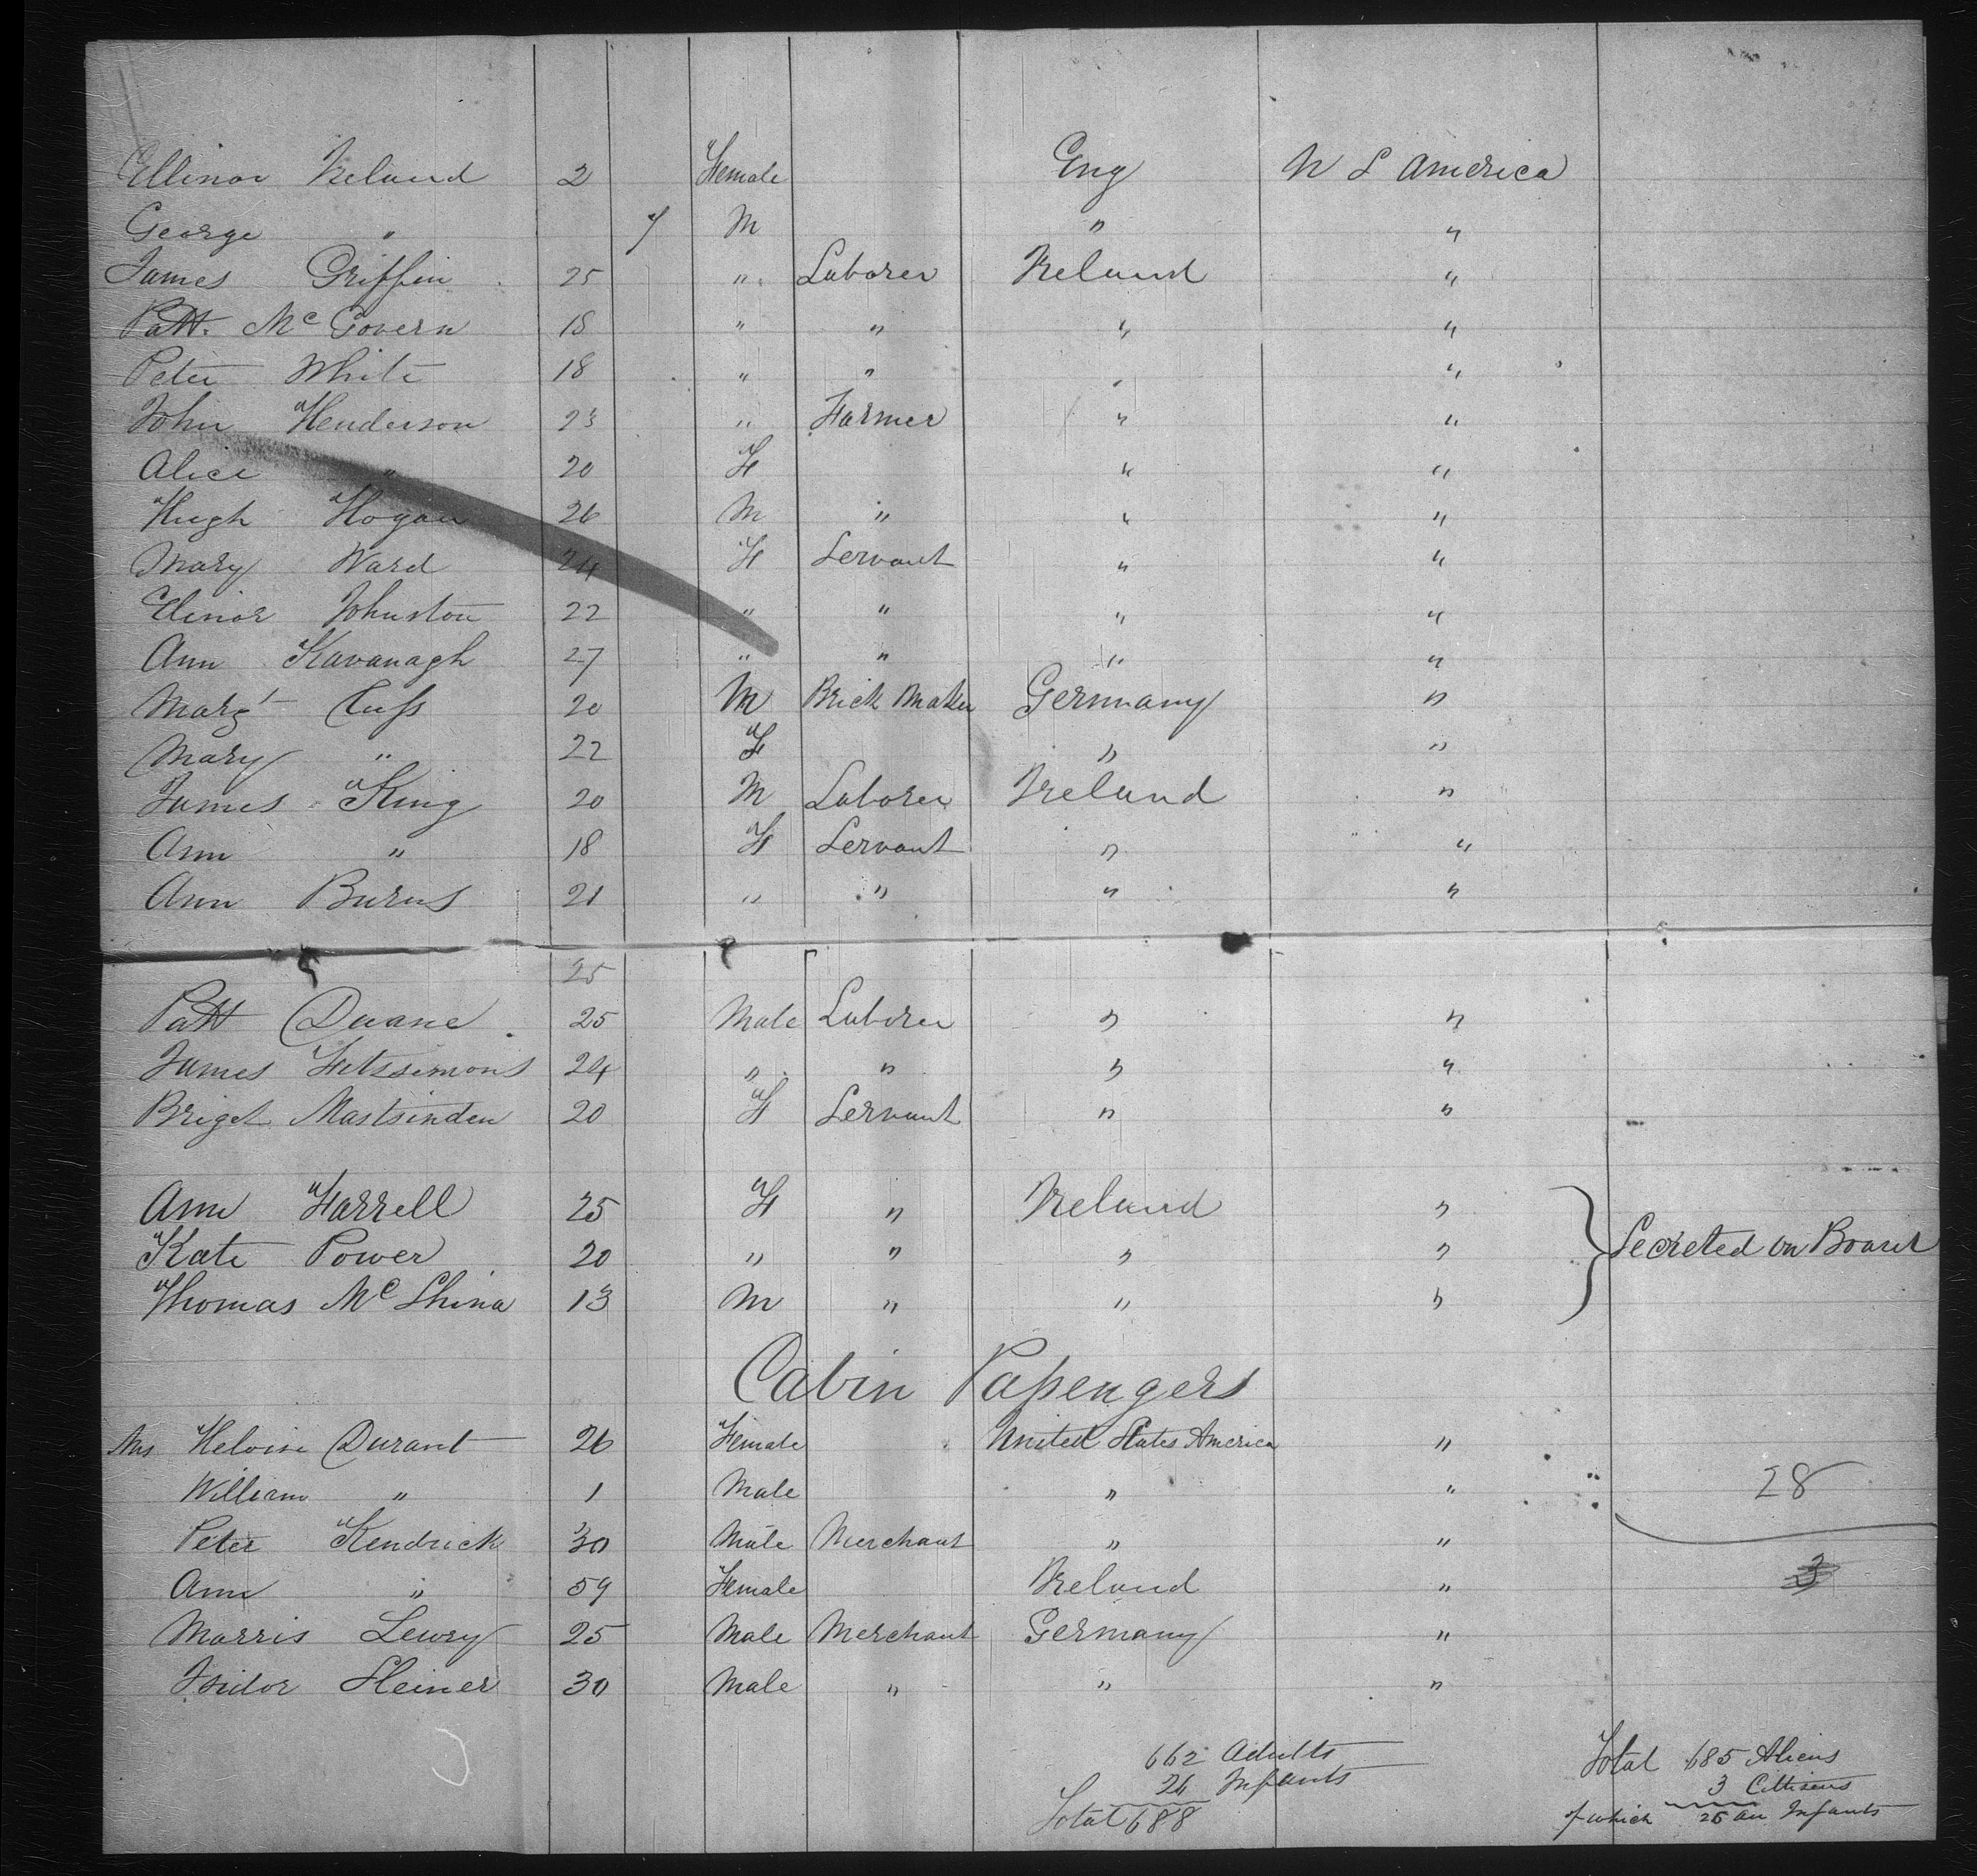 Ellinor Ireland 2 Female Eng U S America
George " 7 M " "
James Griffin 25 " Laborer Ireland "
Patt. McGovern 18 " " " "
Peter White 18 " " " "
John Henderson 23 " Farmer " "
Alice " 20 F " "
Hugh Hogan 26 M " " "
Mary Ward 24 F Servant " "
Elinor Johnston 22 " " " "
Ann Kavanagh 27 " " " "
Margt Cuss 20 M Brick Maker Germany "
Mary " 22 F " "
James King 20 M Laborer Ireland "
Ann " 18 F Servant " "
Ann Burns 21 " " " "
25
Patt Duane 25 Male Laborer " "
James Fitssimons 24 " " " "
Briget Mastsinden 20 F Servant " "
Ann Farrell 25 F " Ireland "
Kate Power 20 " " " " Secreted on Board
Thomas McShina 13 M " " "
Cabin Passengers
Mrs Heloise Durant 26 Female United States America "
William " 1 Male " " 28
Peter Kendrick 30 Male Merchant " "
Ann " 59 Female Ireland " 3
Morris Lewry 25 Male Merchant Germany "
Isidor Steiner 30 Male " " "
662 Adults
26 Infants
Total 688
Total 685 Aliens
3 Citisens
of which 26 au Infants